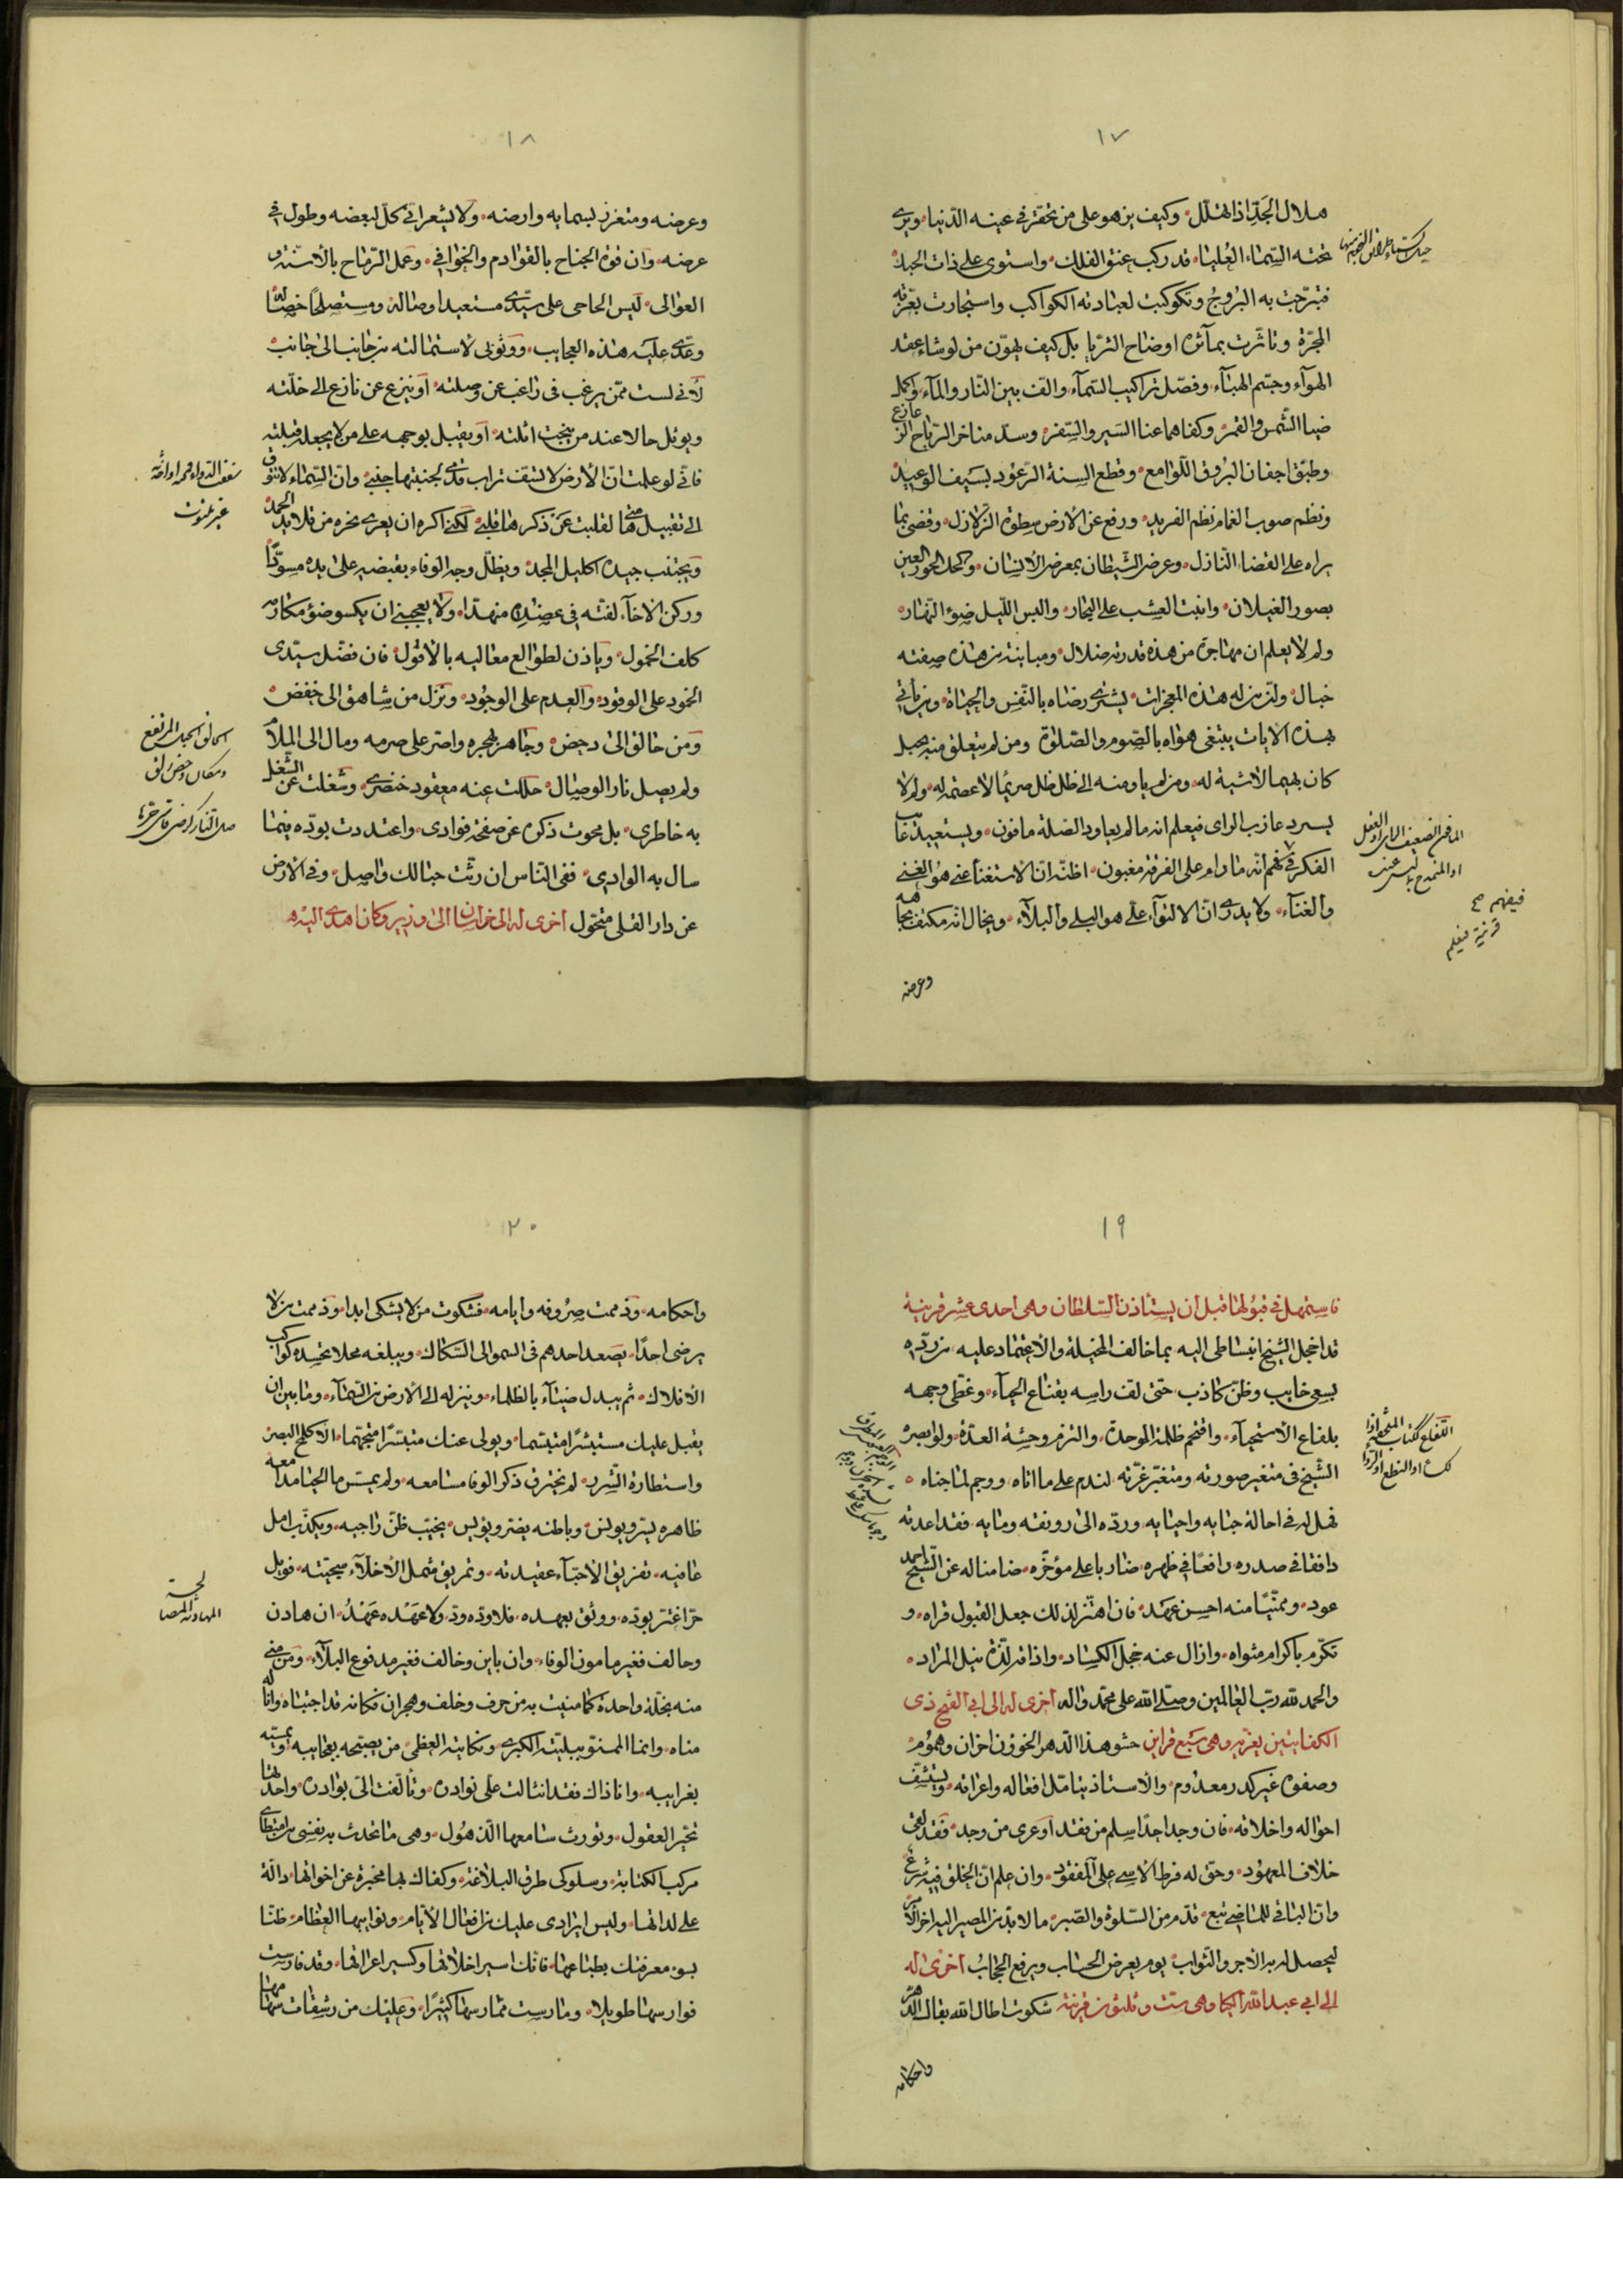 ١٧
هلال الجَدِّ اذا تهلّل وكيف يزهو على من تحقر في عينه الدّنيا ويرى
تحته السّماء العُليا قد ركب عنق الفلك واستوى على ذات الحبك
فتبرّجت به البُروجُ وتكوكبت لعبادته الكواكب واستجارت بعزّته
المجرّة وتاثّرت بمآثره اوضاح الثريّا بل كيف يهوّن من لو شاء عقد
الهوآء وجسّم الهبآء وفصّل تراكيب السّمآء والّف بين النّار والمآء واكمد
ضيا الشّمس والقمر وكفاهما عنا السّير والسّفر وسدّ مناخر الرّياح الزعازع
وطبّق اجفان البُروق اللّوامع وقطع السنة الرّعود بسَيف الوعيد
ونظم صوب الغمام نظم الفريد ورفع عن الارض سطوة الزّلازل وقضى بما
يراه على القضاء النّازل وعرض الشّيطان بمعرض الانسان وكحل الحور العين
بصور الغيلان وانبت العشب على البحار والبس اللّيل ضوء النّهار
ولم لا يعلم ان مهاجرة من هذه قدرته ضلال ومباينة من هذه صفته
خبال ولنّ من له هذه المعجزات يشترى رضاه بالنّفس والحياة ومن يأتى
بهذه الايات يبتغى هواه بالصّوم والصّلوة ومن لم يتعلق منه بحبل
كان بهيما لا شية له ومن لم ياو منه الى ظل ظل صريعا لا عصمة له ولم لا
يسرد عازب الراى فيعلم انه ما لم يعاود الصّلة مافون ويستعيد غائب
الفكر فيفهم انّه ما دام على الفرقة مغبون اظنّه انّ الاستغنا عنى هو الغنى
والغنآء ولا يدرى انّ الالتوآء علىّ هو البلى والبلآء ويخال انّه مكتف بجاهه
وعرضه
١٨
وعرضه ومتعزز بسمايه وارضه ولا يشعر انى كلّ لبعضه وطول فى
عرضه وان قوة الجناح بالقوادم والخوافى وعمل الرّماح بالاسنّة و
العوالى ليس الحاحى على سيّدى مستعيدا وصاله ومستصلحا خصاله
وعدّى عليه هذه العجايب ووثوبى لاستمالته من جانب الى جانب
لأنى لست ممّن يرغب فى راغب عن وصلته او ينزع عن نازع الى خلّته
ويؤثل حالا عند من ينحت اثلته او يقبل بوجهه على من لا يجعله قبلته
فانى لو علمت انّ الأرض لا تشف تراب قدمى لجنبتها جنبى وان السّماء لا تتوق
الى تقبيل هامتى لقلبت عَن ذكرها قلبى لكنى اكره ان يعرى نحره من قلايد الحمد
ويجتنب جيده اكليل المجد ويظلّ وجه الوفاء بقبضه على يده مسودّا
وركن الاخآء لفتّه فى عضده منهدّا ولا يعجبنى ان يكسو ضوء مكارمه
كلف الخمول وياذن لطوالع معاليه بالأفول فان فضّل سيّدى
الخمود على الوقود والعدم على الوجُود ونزل من شاهق الى خفض
ومن حالق الى دحض وجاهر بهجره واصر على صرمه ومال الى الملال
ولم يصل نار الوصال حللت عنه معقود خنصرى وشغلت عن الشغل
به خاطرى بل محوت ذكره عن صفحة فوادى واعتددت بودّه فيما
سال به الوادى ففى النّاس ان رثّت حبالك واصل وفى الارض
عن دار القلى متحول اخرى له الى خراسان الى وزير وكان اهدى اليه
شفت الدواء
الحالق الجبل المرتفع
ومكان دحض زلق
صلى النار كرضى قاسى حرها
١٩
فاستمهل فى قبُولها قبل ان يستاذن السّلطان وهى احدى عشر قرينة
قد اخجل الشّيخ انبساطى اليه بما خالف المخيلة والاعتماد عليه من ردّه
بسعى خايب وظنّ كاذب حتى لف راسه بقناع الحيآء وغطّى وجهه
بلفاع الأستحيآء واقتحم ظلمة الوحدة والتزم وحشة العدّة ولو ابصره
الشّيخ فى متغير صورته ومتغبّر غرّته لندم على ما اتاه ووجم لما جناه
فهل له فى احالة جنابه واجنابه وردّه الى رونقه ومابه فقد اعدته
دافقا فى صدره رافعًا فى ظهره ضاربا على مؤخّره ضامنا له عن الشّيخ احمد
عود ومتمنّيا منه احسن عهد فان اهتز لذلك جعل القبول قراه و
تكرّم باكرام مثواه وازال عنه خجل الكساد واذاقه لذّة نيل المراد
والحمد لله ربّ العالمين وصلّى الله على محمّد واله اخرى له الى ابى الفتح ذى
الكفايتين يعزّيه وهى سَبع قراين حشو هذا الدّهر الخؤون احزان وهموُم
وصفوه غير كدر معدوم والاستاذ يتامّل افعاله واعرافه ويستشف
احواله واخلاقه فان وجد احدًا سلم من فقد او عرى من وجد فقد لقى
خلاف المعهود وحق له فرط الاسى على المفقود وان علم انّ الخلق فيه شرع
وان الباقى للماضى تبع قدّم من السّلوة والصّبر ما لا بدّ من المصير اليه اخر الأمر
ليحصل له به الاجر والثّواب يوم يعرض الحساب ويرفع الحجابُ اخرى له
الى ابى عبد الله الحاكم وهى ست وثلثون قرينة شكوت اطال الله بقاك الدّهر
واحكامه
٢٠
واحكامه وذممت صرُوفه وايامه فشكوت من لا يشكى ابدا وذممت من لا
يرضى احدًا يصعد احدهم فى السمو الى السّكاك ويبلغه محلا تحسده كواكب
الأفلاك ثم يبدل ضيآء بالظلماء وينزله الى الارض من السّمآء وما بين ان
يقبل عليك مستبشرًا متبسّما ويولى عنك متبسّرًا متجهّما الا كلمح البصر
واستطارة الشّرر لم تخترق ذكر الوفا مسامعه ولم يمسّ ماء الحيا مدامعه
ظاهره يسرّ ويونس وباطنه يضرّ ويؤيس يخيّب ظنّ راجيه ويكذّب امل
عافيه تفريق الأحبّآء عقيدته وتمزيق شمل الأخلّآء سجيّته فويل
حرّ اغترّ بودّه ووثق بعهده فلا ودّه ودّ ولا عَهْده عَهْدُ ان هادن
وحالف فغير مامون الوفاء وان باين وخالف فغير مدفوع البلآء ومن منى
منه بخلّة واحدة كما منيت به من حرف وخلف وهجران فكانه قد اجتباه وانا له
مناه وانما الممنّو ببليّته الكبرى ونكايته العظمى من يصبّحه بعجايبه ويمسّيه
بغرايبه وانا ذاك فقد انثالت علىّ نوادره وتألّفت الىّ بوادره واحدها
تحيّر العقول وتورث سامعها الذّهول وهى ما تحدث به نفسى من امتطاى
مركب الكتابة وسلوكى طرق البلاغة وكفاك بها مخبرة عن اخواتها دالّة
على لداتها وليس ايرادى عليك من افعال الأيّام ونوايبها العظام ظنّا
بسوء معرفتك بطباعها فانّك اسير اخلاقها وكسير اعراقها وقد فارست
فوارسها طويلا ومارست ممارسها كثيرًا وعليك من رشقات سهامها
المهادنة المصالحة